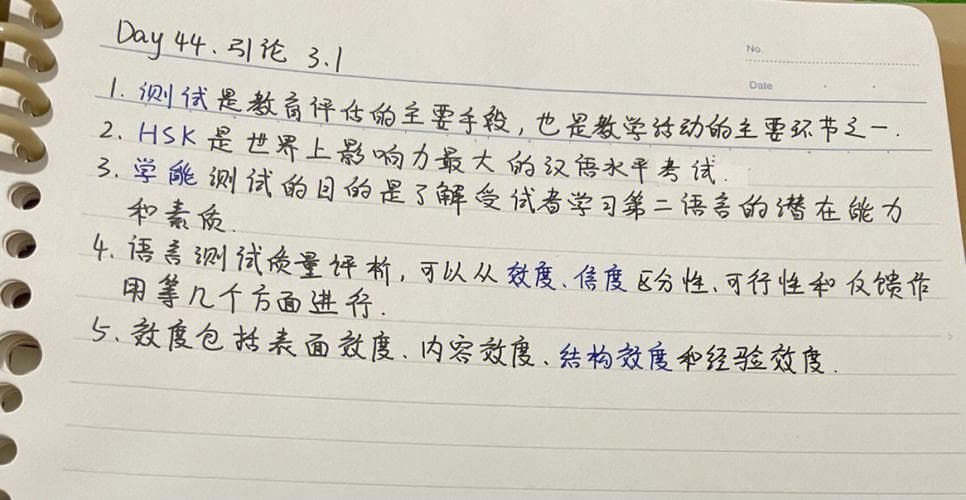 Day 44. 引论 3.1
No.
Date
1. 测试是教育评估的主要手段，也是教学活动的主要环节之一.
2. HSK 是世界上影响力最大的汉语水平考试.
3. 学能测试的目的是了解受试者学习第二语言的潜在能力
和素质.
4. 语言测试质量评析，可以从效度、信度区分性、可行性和反馈作
用等几个方面进行.
5. 效度包括表面效度、内容效度、结构效度和经验效度.